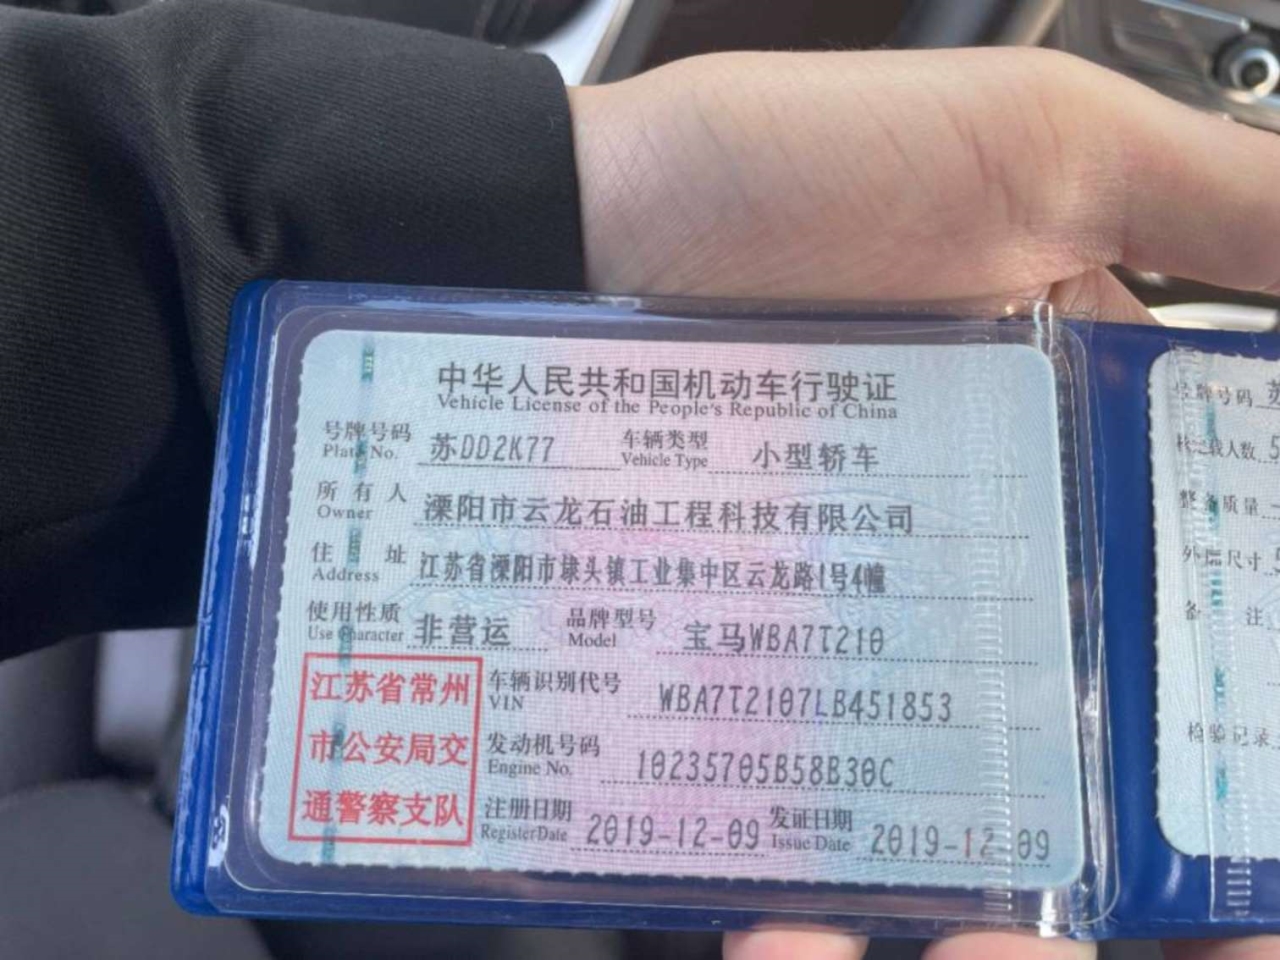 中华人民共和国机动车行驶证
Vehicle License of the People's Republic of China
号牌号码 苏DD2K77 车辆类型 小型轿车
Plate No. Vehicle Type
所有人 溧阳市云龙石油工程科技有限公司
Owner
住址 江苏省溧阳市埭头镇工业集中区云龙路1号4幢
Address
使用性质 非营运 品牌型号 宝马WBA7T210
Use Character Model
江苏省常州
市公安局交
通警察支队
车辆识别代号 WBA7T2107LB451853
VIN
发动机号码 10235705B58B30C
Engine No.
注册日期 2019-12-09 发证日期 2019-12-09
Register Date Issue Date
号牌号码 苏
核定载人数 5
整备质量
外廓尺寸 5
备注
检验记录